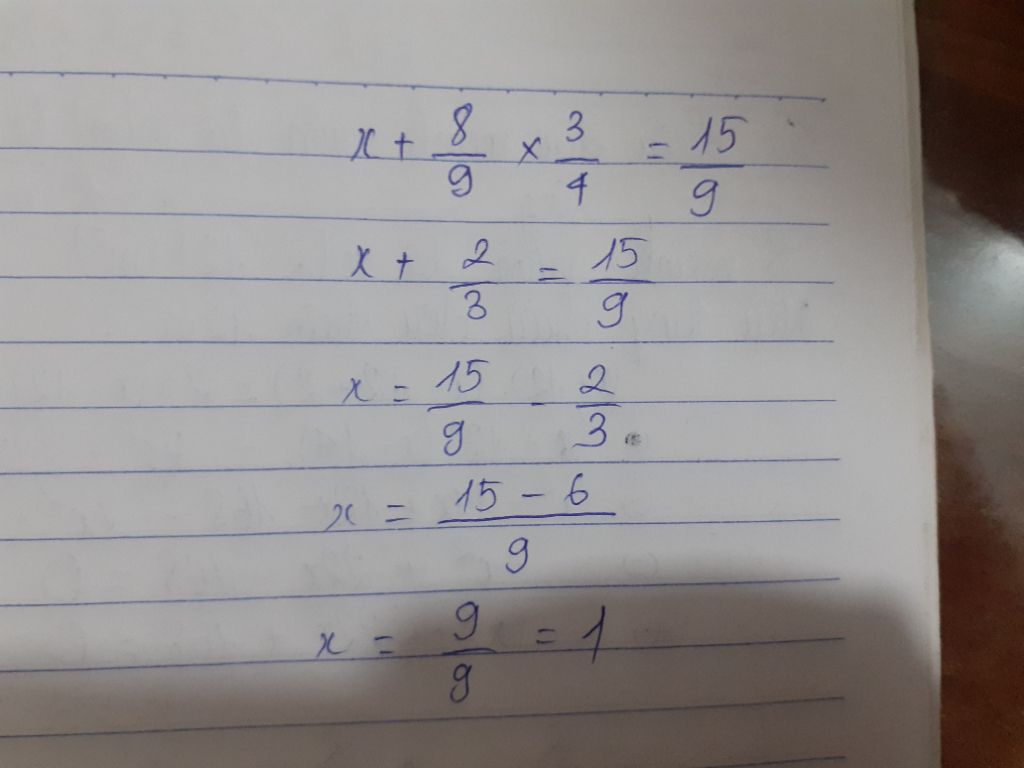 x + 8/9 × 3/4 = 15/9
x + 2/3 = 15/9
x = 15/9 - 2/3
x = (15 - 6)/9
x = 9/9 = 1